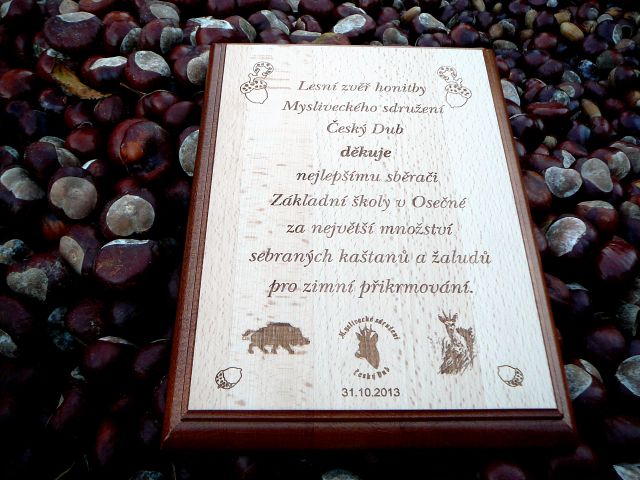 Lesní zvěř honitby
Mysliveckého sdružení
Český Dub
děkuje
nejlepšímu sběrači
Základní školy v Osečné
za největší množství
sebraných kaštanů a žaludů
pro zimní přikrmování.
Myslivecké sdružení
Český Dub
31.10.2013